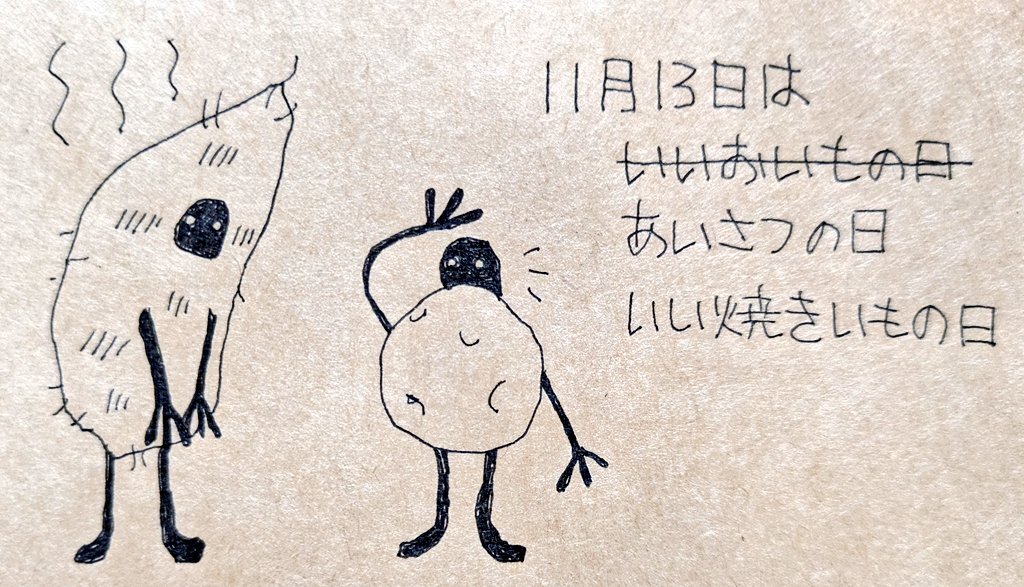 11月13日は
いいおいもの日
あいさつの日
いい焼きいもの日